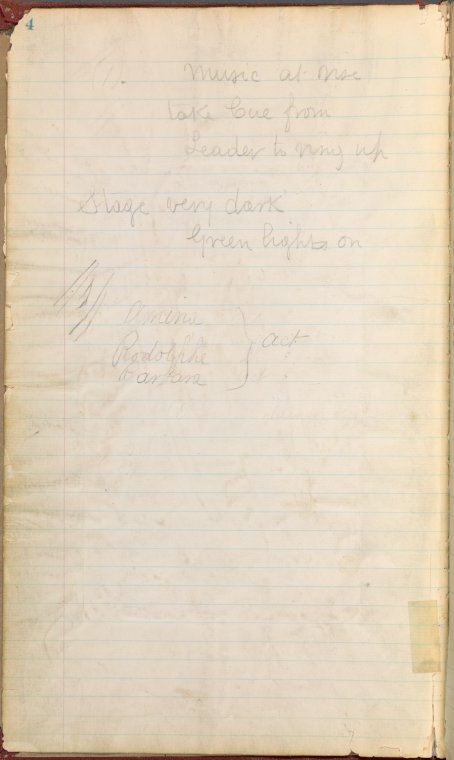 4
Music at rise
take Cue from
Leader to ring up
Stage very dark
Green lights on
Amina
Rodolphe
Barbara
act